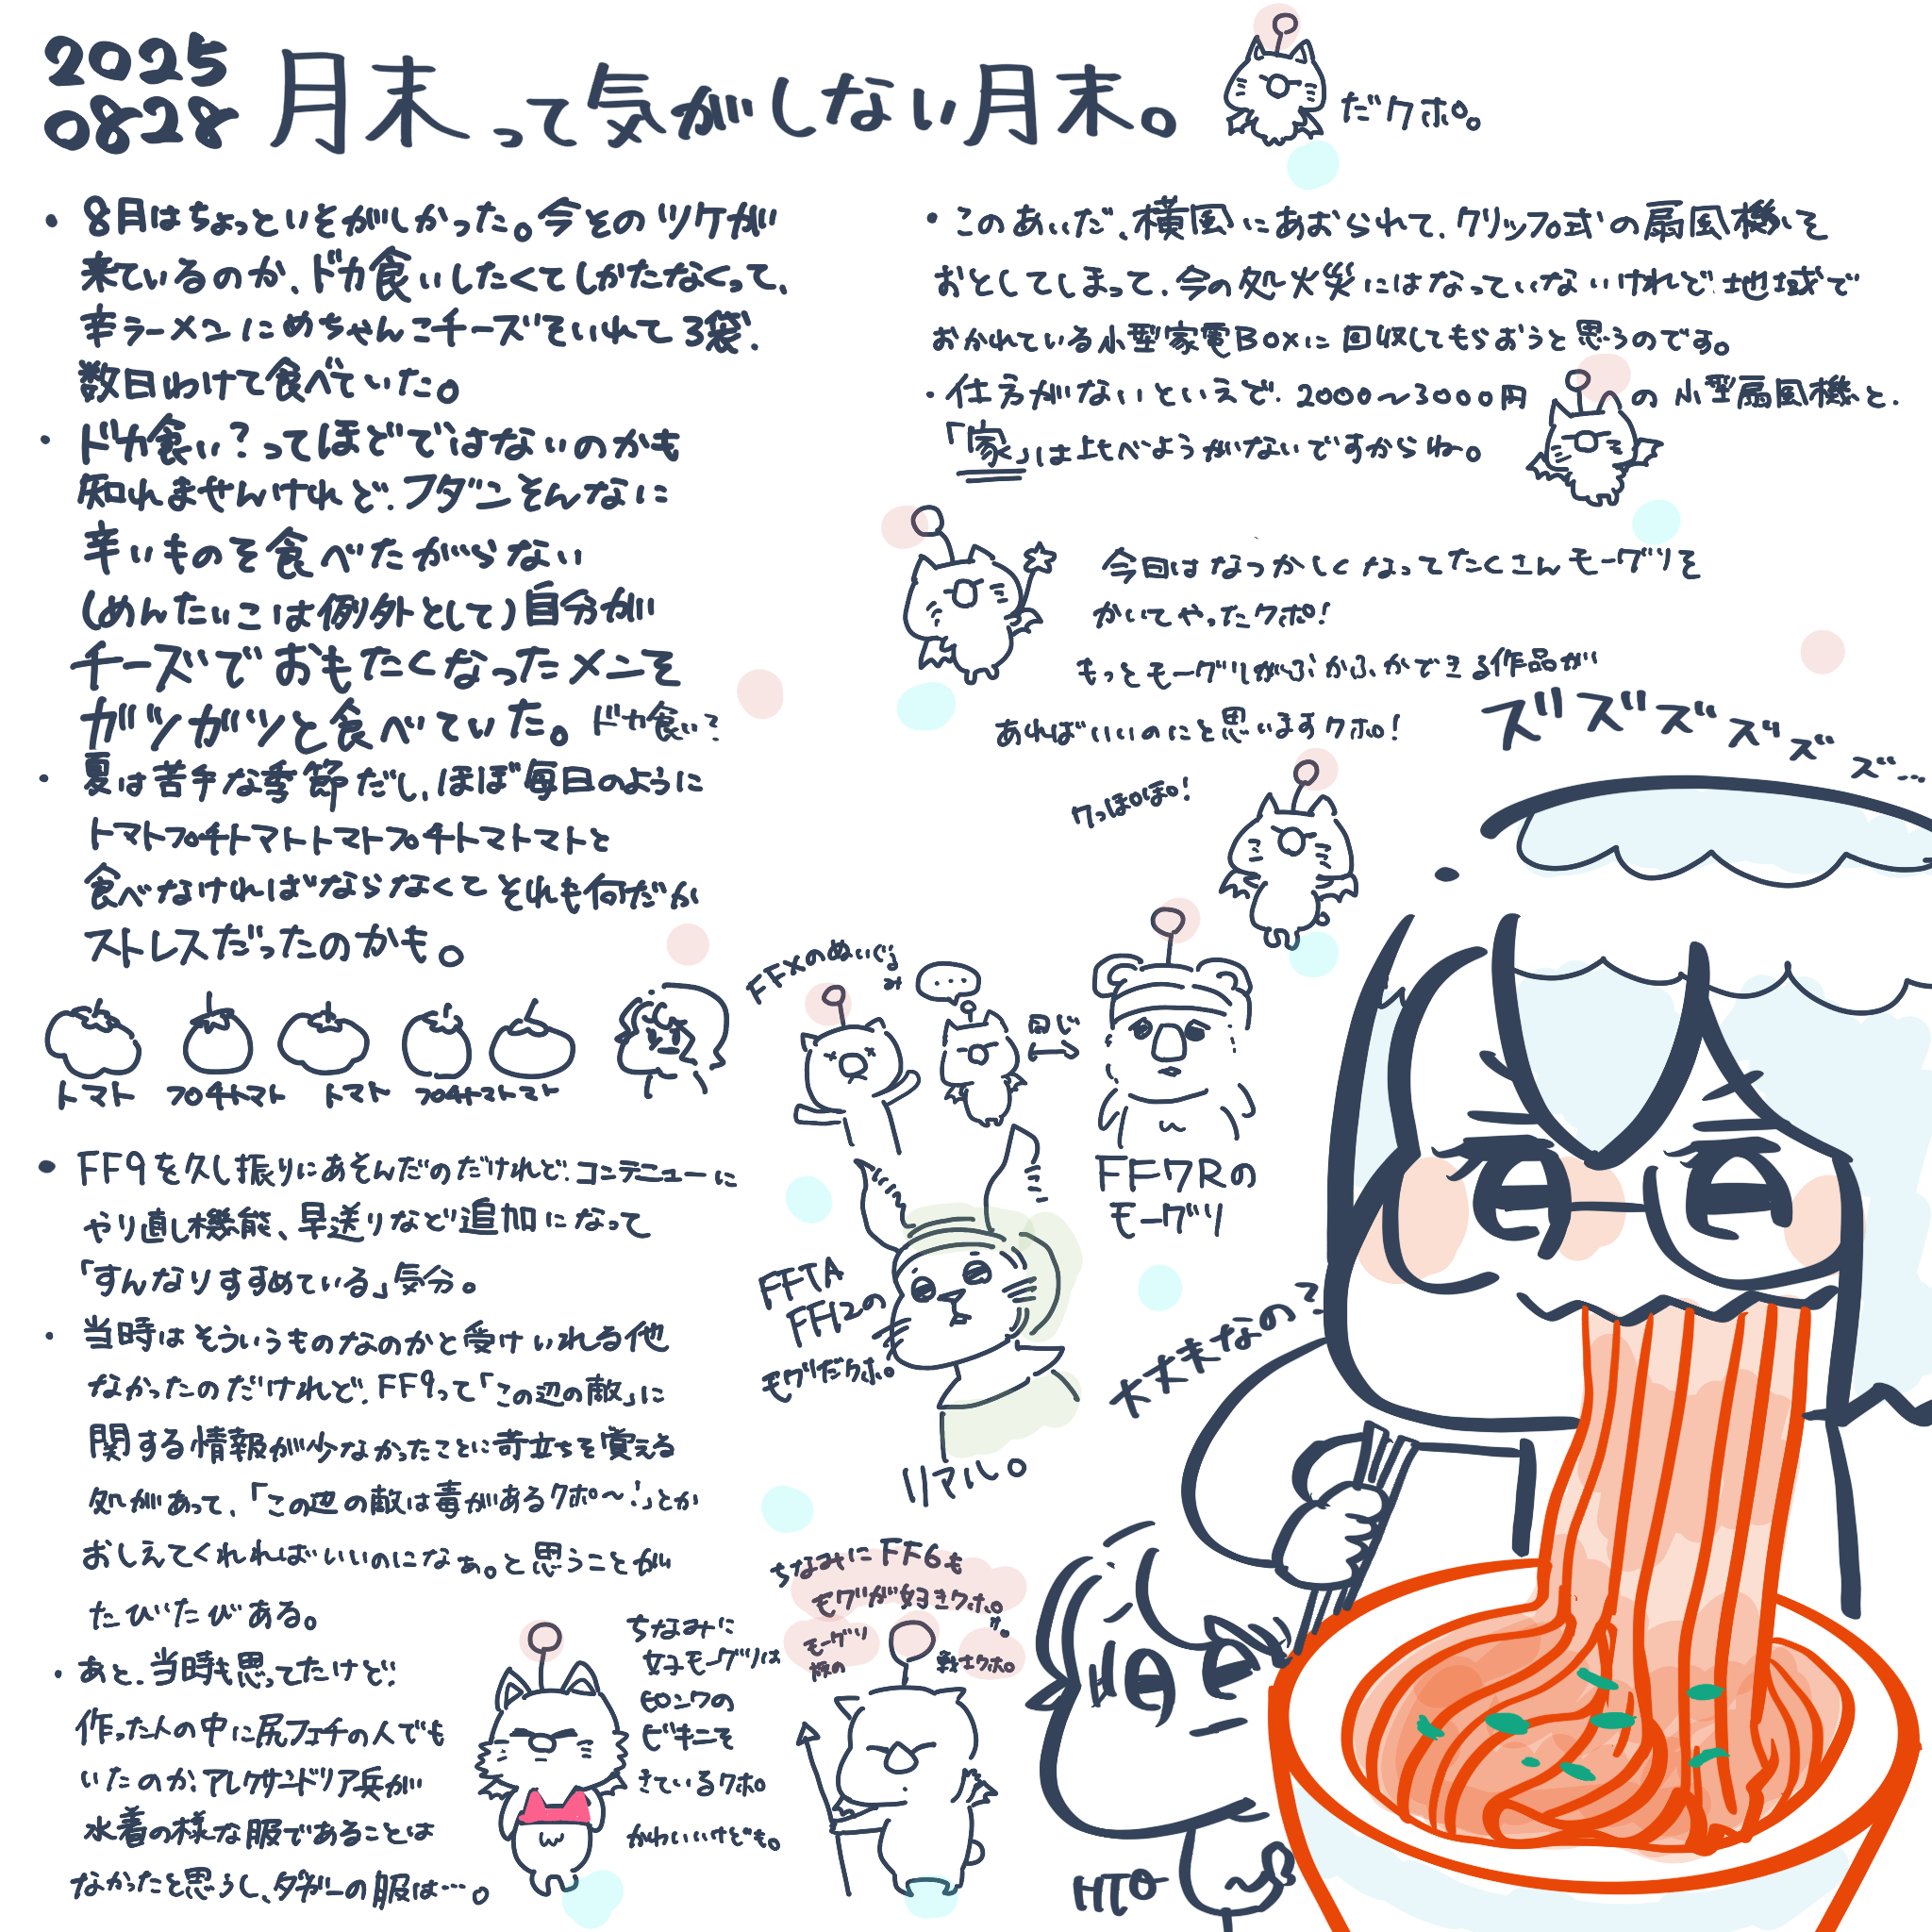 2025
0828
月末って気がしない月末。
だクポ。
・8月はちょっといそがしかった。今そのツケが
来ているのか、ドカ食いしたくてしかたなくって、
辛ラーメンにめちゃんこチーズをいれて3袋、
数日わけて食べていた。
・ドカ食い?ってほどではないのかも
知れませんけれど、フダンそんなに
辛いものを食べたがらない
(めんたいこは例外として)自分が
チーズでおもたくなったメンを
ガツガツと食べていた。ドカ食い?
・夏は苦手な季節だし、ほぼ毎日のように
トマトプチトマトトマトプチトマトマトと
食べなければならなくてそれも何だか
ストレスだったのかも。
トマト プチトマト トマト プチトマトマト
・FF9を久し振りにあそんだのだけれど、コンテニューに
やり直し機能、早送りなど追加になって
「すんなりすすめている」気分。
・当時はそういうものなのかと受けいれる他
なかったのだけれど、FF9って「この辺の敵」に
関する情報が少なかったことに苛立ちを覚える
処があって、「この辺の敵は毒があるクポ〜!」とか
おしえてくれればいいのになぁ。と思うことが
たびたびある。
・あと、当時も思ってたけど、
作った人の中に尻フェチの人でも
いたのか、アレクサンドリア兵が
水着の様な服であることは
なかったと思うし、ダガーの服は…。
ちなみに
女子モーグリは
ピンクの
ビキニを
きているクポ
かわいいけども。
・このあいだ、横風にあおられて、クリップ式の扇風機を
おとしてしまって、今の処火災にはなっていないけれど、地域で
おかれている小型家電Boxに回収してもらおうと思うのです。
・仕方がないといえど、2000〜3000円の小型扇風機と、
「家」は比べようがないですからね。
今回はなつかしくなってたくさんモーグリを
かいてやったクポ!
もっとモーグリがぷかぷかできる作品が
あればいいのにと思いますクポ!
クっぽぽ!
FFXのぬいぐるみ
…
同じ
FF7Rの
モーグリ
FFTA
FF12の
モグリだクポ。
リマル。
ちなみにFF6も
モグが好きクポ。
モーグリ
族の
戦士クポ。
ズズズズズズ…
大丈夫なの?
HTO